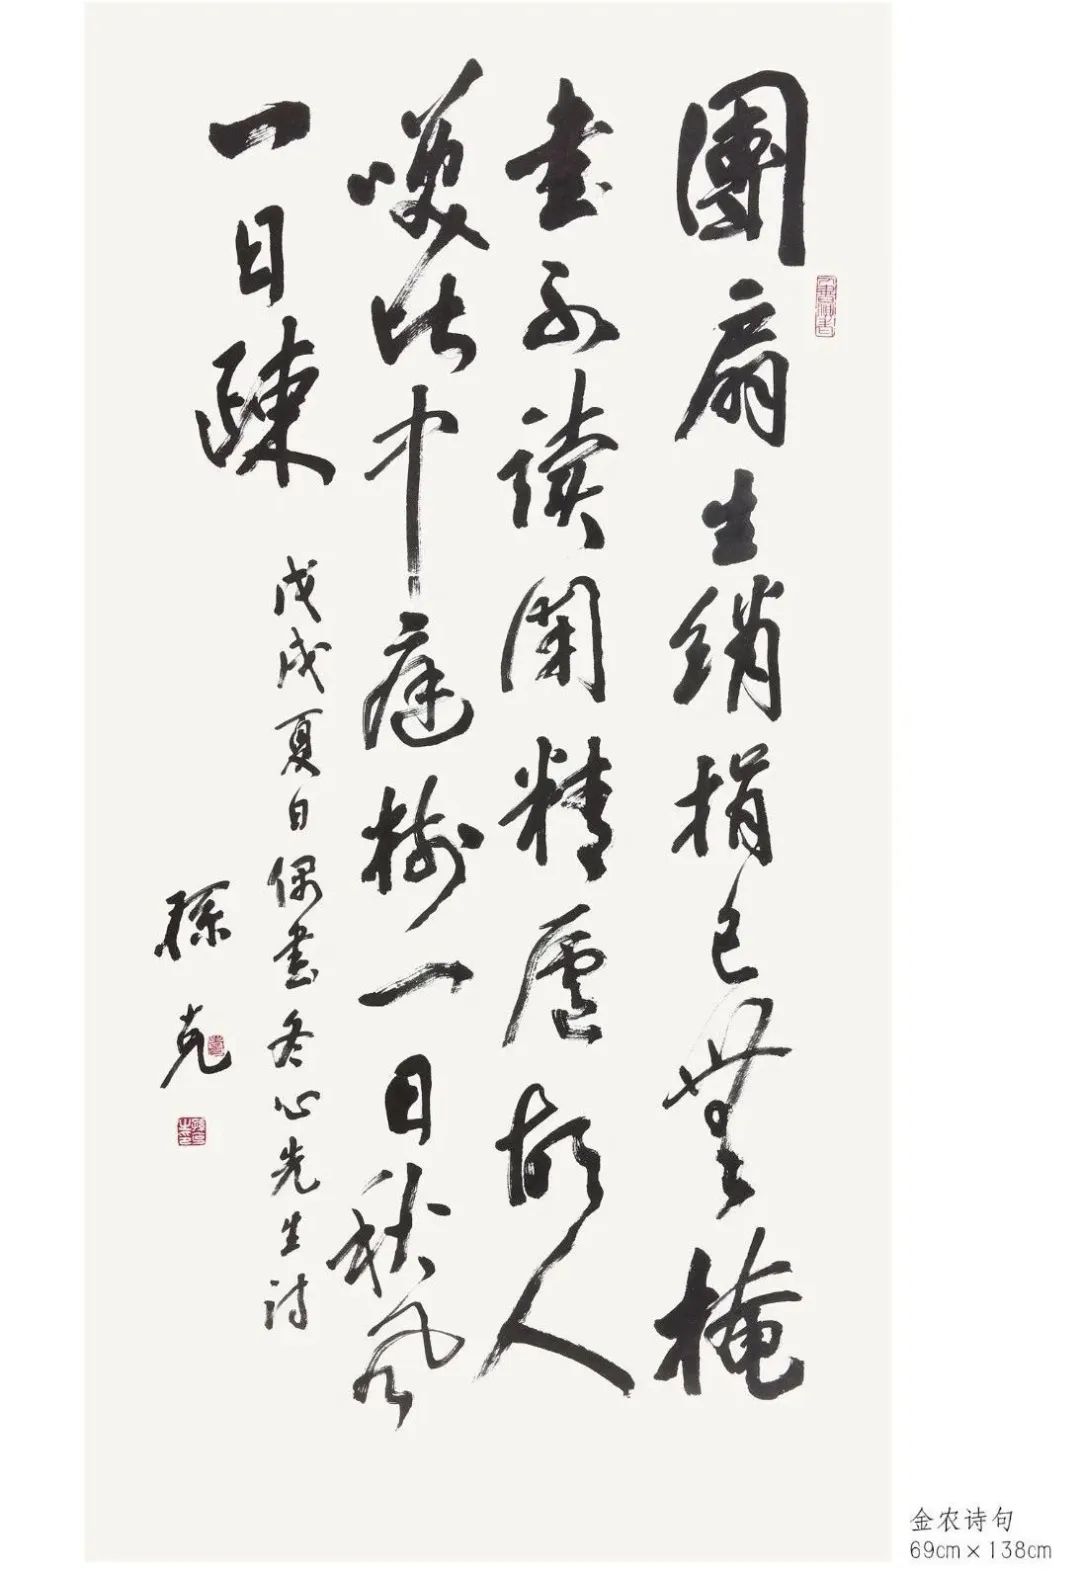 團扇生綃捐已無掩
書不讀閉精廬故人
咲比中庭樹一日秋風
一日疎
戊戌夏日偶書冬心先生詩
孫克
金农诗句
69cm×138cm